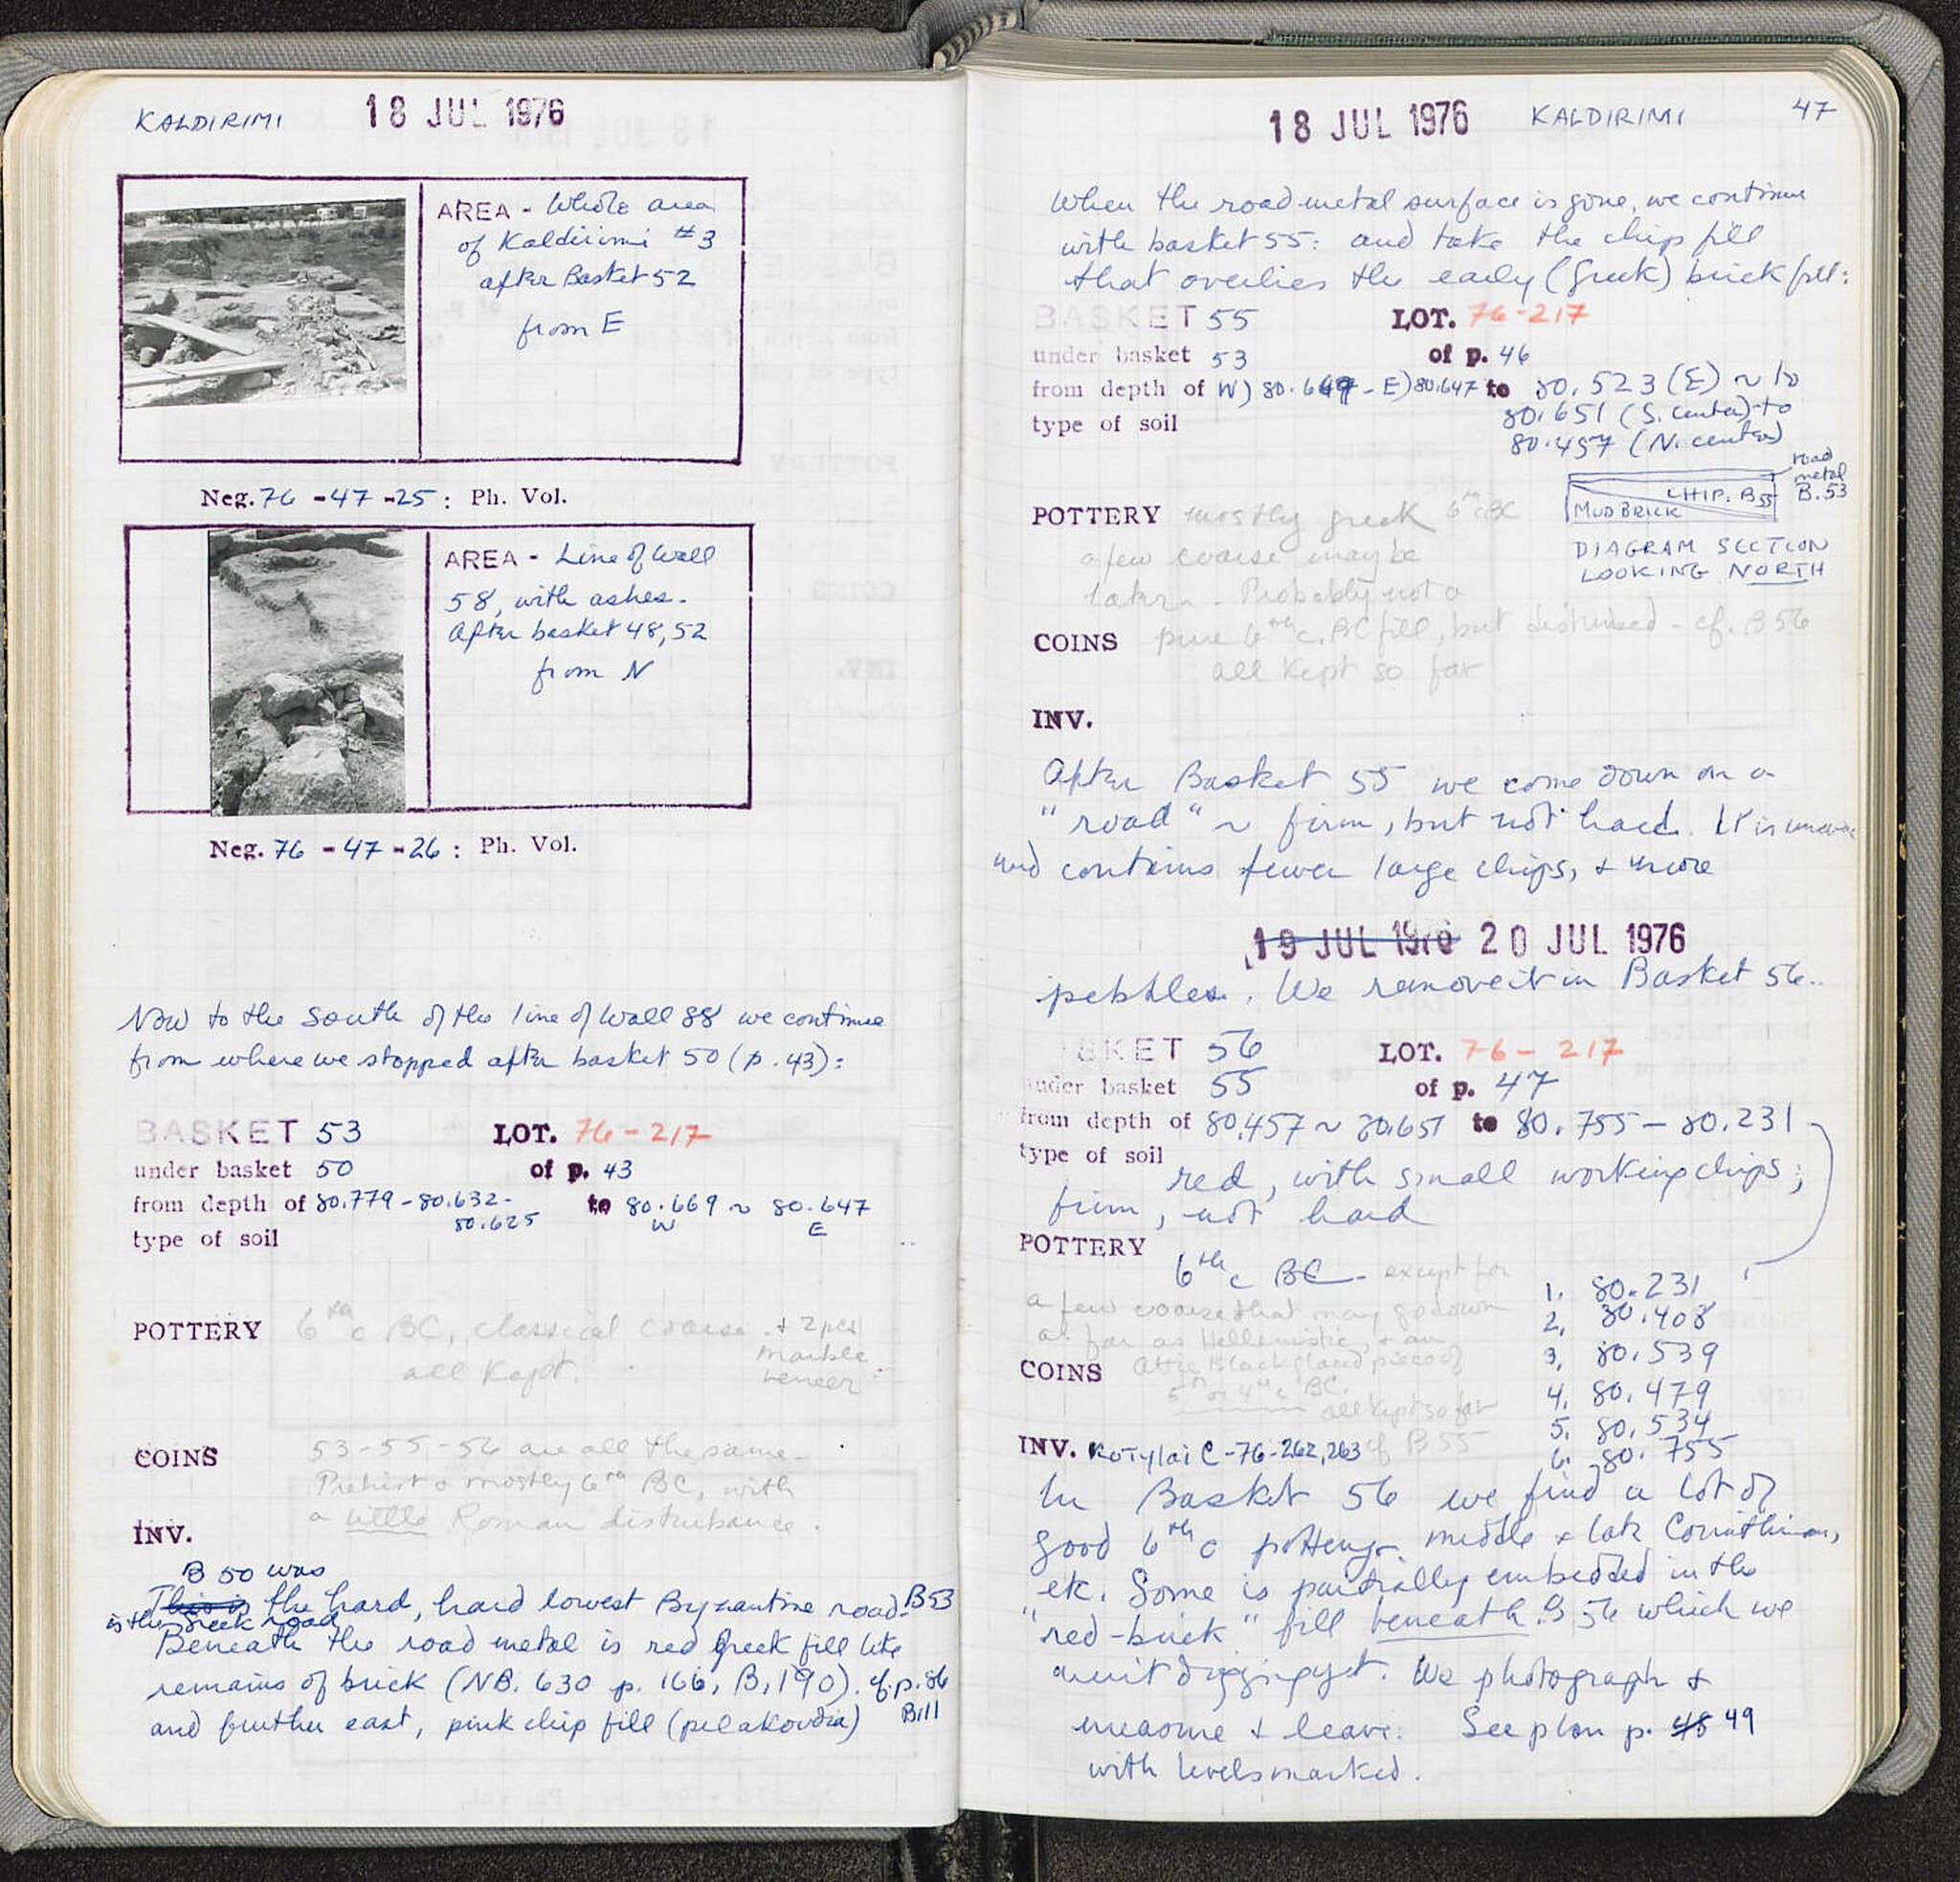 KALDIRIMI 18 JUL 1976
AREA - Whole area
of Kaldirimi #3
after Basket 52
from E
Neg. 76 - 47 - 25 : Ph. Vol.
AREA - Line of Wall
58, with ashes.
After basket 48, 52
from N
Neg. 76 - 47 - 26 : Ph. Vol.
Now to the South of the line of Wall 88 we continue
from where we stopped after basket 50 (p. 43):
BASKET 53 LOT. 76-217
under basket 50 of p. 43
from depth of 80.779 - 80.632 - to 80.669 ~ 80.647
80.625 W E
type of soil
POTTERY 6th c BC, classical coarse + 2 pcs
marble
all kept. veneer
COINS 53-55-56 are all the same -
Prehist & mostly 6th BC, with
a little Roman disturbance.
INV.
B 50 was
This is the hard, hard lowest Byzantine road. B53
is the Greek road
Beneath the road metal is red Greek fill like
remains of brick (NB. 630 p. 166, B. 190). cf. p. 86
B111
and further east, pink chip fill (pelakoudia)
18 JUL 1976 KALDIRIMI 47
When the road metal surface is gone, we continue
with basket 55: and take the chip fill
that overlies the early (Greek) brick fill:
BASKET 55 LOT. 76-217
under basket 53 of p. 46
from depth of W) 80.669 - E) 80.647 to 80.523 (E) ~ to
80.651 (S. center) to
80.457 (N. center)
type of soil
road
metal
B.53
CHIP. B55
MUDBRICK
DIAGRAM SECTION
LOOKING NORTH
POTTERY mostly greek 6th c BC
a few coarse may be
later. Probably not a
pure 6th c. BC fill, but disturbed - cf. B 56
all kept so far
COINS
INV.
After Basket 55 we come down on a
"road" ~ firm, but not hard. It is uneven
and contains fewer large chips, & more
19 JUL 1976 20 JUL 1976
pebbles. We remove it in Basket 56..
BASKET 56 LOT. 76-217
under basket 55 of p. 47
from depth of 80.457 ~ 80.651 to 80.755 - 80.231
type of soil red, with small working chips;
firm, not hard
POTTERY
6th c BC - except for
a few coarse that may go down
as far as Hellenistic, & an
Attic Black glazed piece of
5th or 4th c BC.
all kept so far
cf B 55
1. 80.231
2. 80.408
3. 80.539
4. 80.479
5. 80.534
6. 80.755
COINS
INV. Kotylai C-76-262, 263
In Basket 56 we find a lot of
good 6th c pottery. middle & late Corinthian,
etc. Some is partially embedded in the
"red-brick" fill beneath B 56 which we
aren't digging yet. We photograph &
measure & leave. See plan p. 48 49
with levels marked.